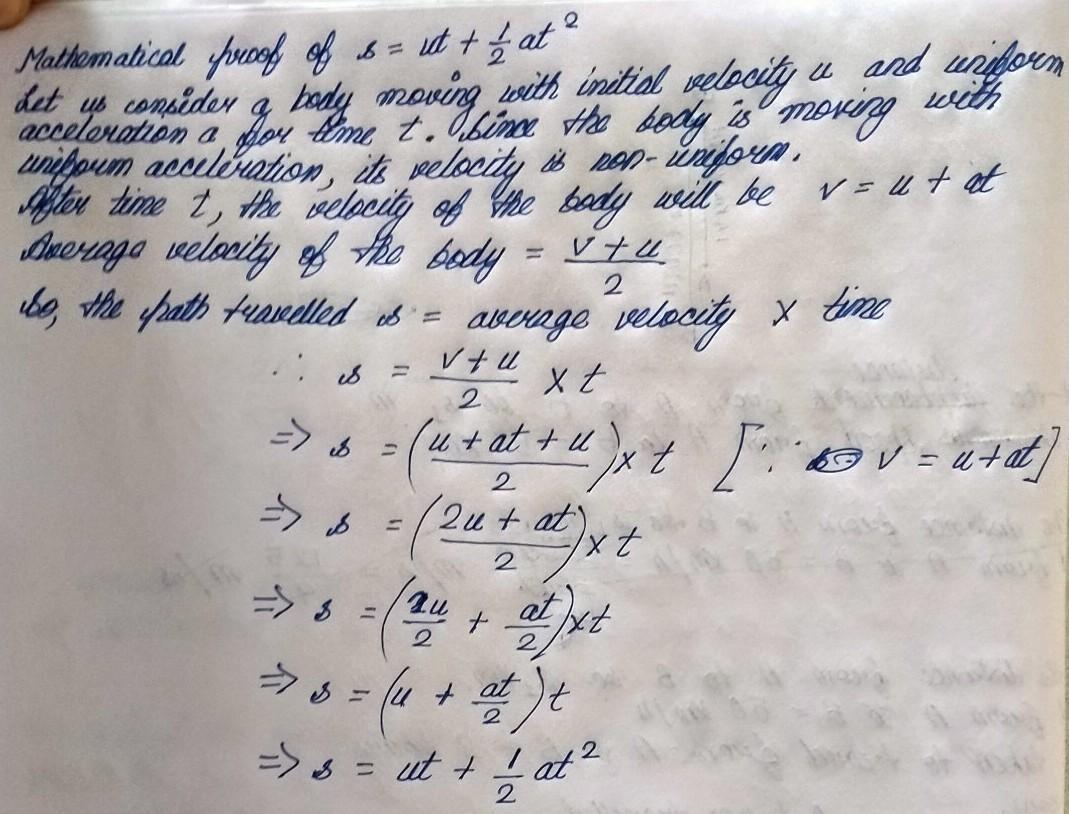 Mathematical proof of s = ut + 1/2 at²
Let us consider a body moving with initial velocity u and uniform
acceleration a for time t. Since the body is moving with
uniform acceleration, its velocity is non-uniform.
After time t, the velocity of the body will be v = u + at
Average velocity of the body = (v + u)/2
So, the path travelled s = average velocity × time
∴ s = (v + u)/2 × t
⇒ s = ((u + at + u)/2) × t [∵ v = u + at]
⇒ s = ((2u + at)/2) × t
⇒ s = (2u/2 + at/2) × t
⇒ s = (u + at/2) t
⇒ s = ut + 1/2 at²